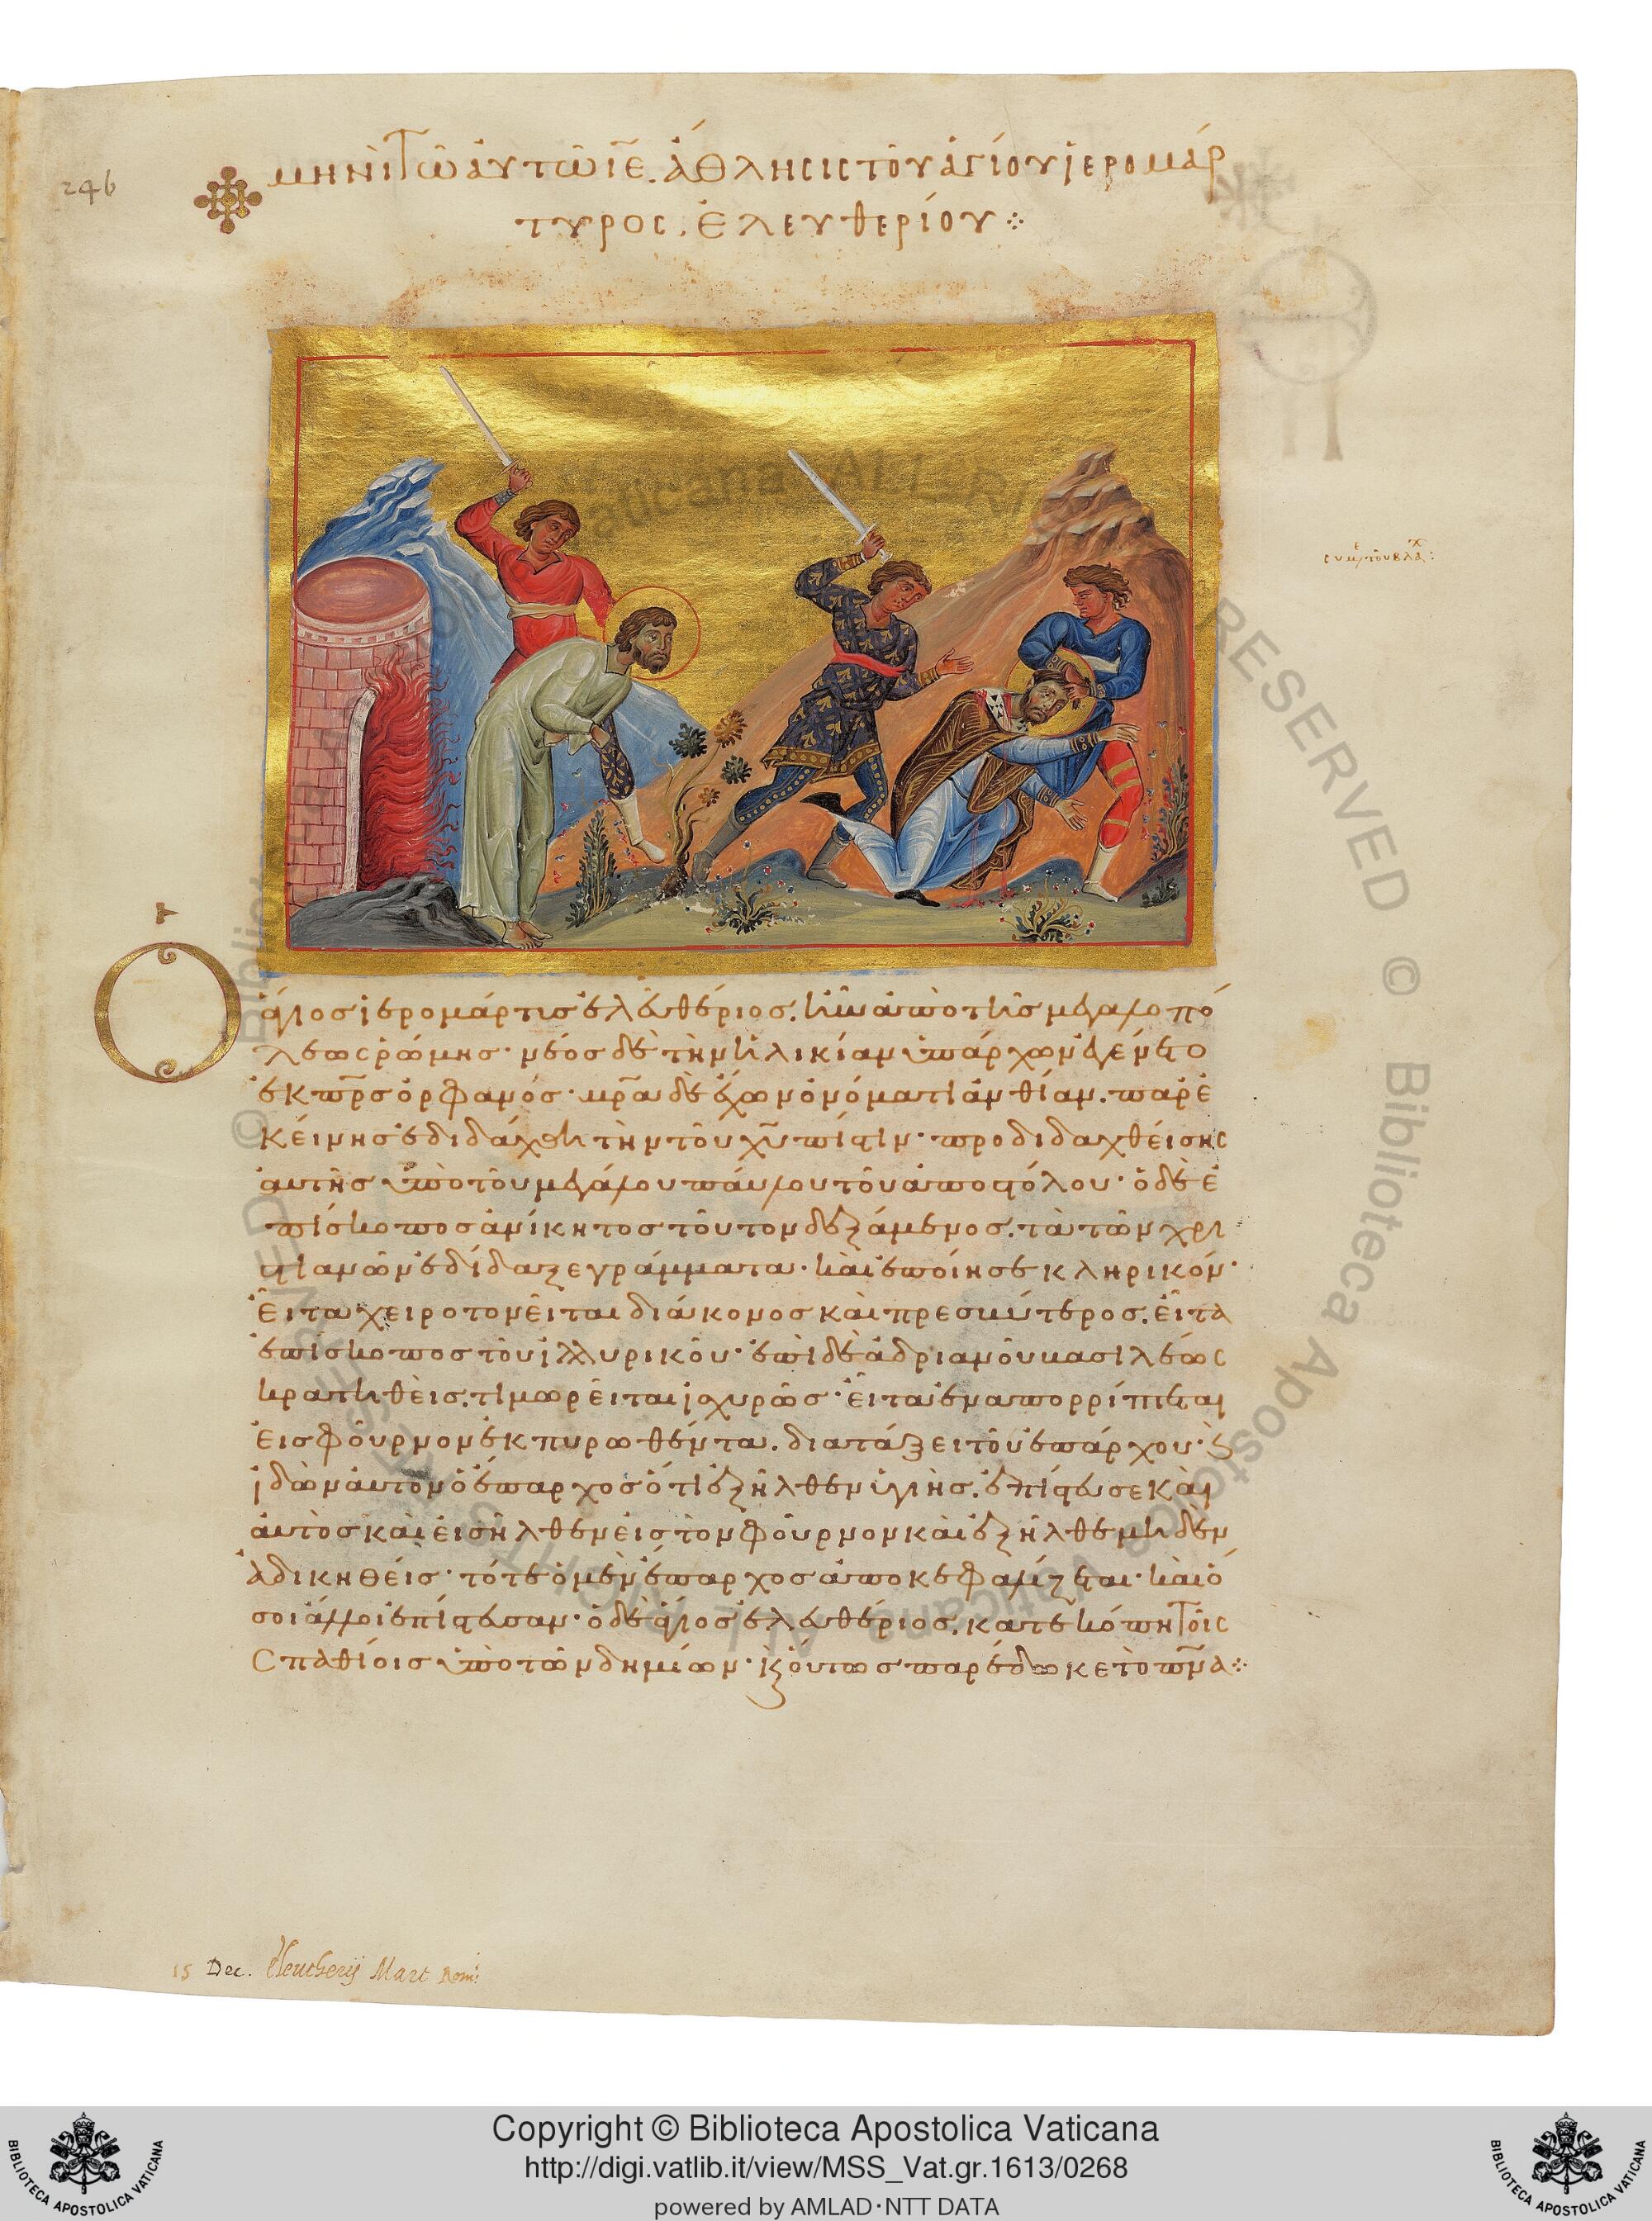 246
μηνὶ τῶ αὐτῶ ιε̄. ἄθλησις τοῦ ἁγίου ἱερομάρ
τυρος Ἐλευθερίου
Ὁ ἅγιος ἱερομάρτυς ἐλευθέριος, ἦν ἀπὸ τῆς μεγαλοπό
λεως ῥώμης· νέος δὲ τὴν ἡλικίαν ὑπάρχων ἐγένετο
ἐκ π̅ρ̅ς ὀρφανός· μ̅ρ̅α δὲ ἔχων ὀνόματι ἀνθίαν. παρ' ἐ
κείνης ἐδιδάχθη τὴν τοῦ χ̅υ̅ πίστιν· προδιδαχθείσης
αὐτῆς ὑπὸ τοῦ μεγάλου παύλου τοῦ ἀποστόλου· ὁ δὲ ἐ
πίσκοπος ἀνίκητος τοῦτον δεξάμενος, τὰ τῶν χρι
στιανῶν ἐδίδαξε γράμματα· καὶ ἐποίησε κληρικόν·
Εἶτα χειροτονεῖται διάκονος καὶ πρεσβύτερος. εἶτα
ἐπίσκοπος τοῦ ἰλλυρικοῦ· ἐπὶ δὲ ἀδριανοῦ βασιλέως
κρατηθεὶς, τιμωρεῖται ἰσχυρῶς· εἶτα ἐναπορρίπτεται
εἰς φοῦρνον ἐκπυρωθέντα. διατάξει τοῦ ἐπάρχου· ϗ
ἰδὼν αὐτὸν ὁ ἔπαρχος ὅτι ἐξῆλθεν ὑγιὴς, ἐπίστευσε καὶ
αὐτὸς καὶ εἰσῆλθεν εἰς τὸν φοῦρνον καὶ ἐξῆλθε μηδὲν
ἀδικηθείς· τότε ὁ μὲν ἔπαρχος ἀποκεφαλίζεται· καὶ ὅ
σοι ἄλλοι ἐπίστευσαν· ὁ δὲ ἅγιος ἐλευθέριος, κατεκόπη τοῖς
Σπαθίοις ὑπὸ τῶν δημίων· ϗ οὕτως παρέδωκε τὸ π̅ν̅α
15 Dec. Eleutherij Mart Rom:
Copyright © Biblioteca Apostolica Vaticana
http://digi.vatlib.it/view/MSS_Vat.gr.1613/0268
powered by AMLAD·NTT DATA
BIBLIOTECA APOSTOLICA VATICANA
BIBLIOTECA APOSTOLICA VATICANA